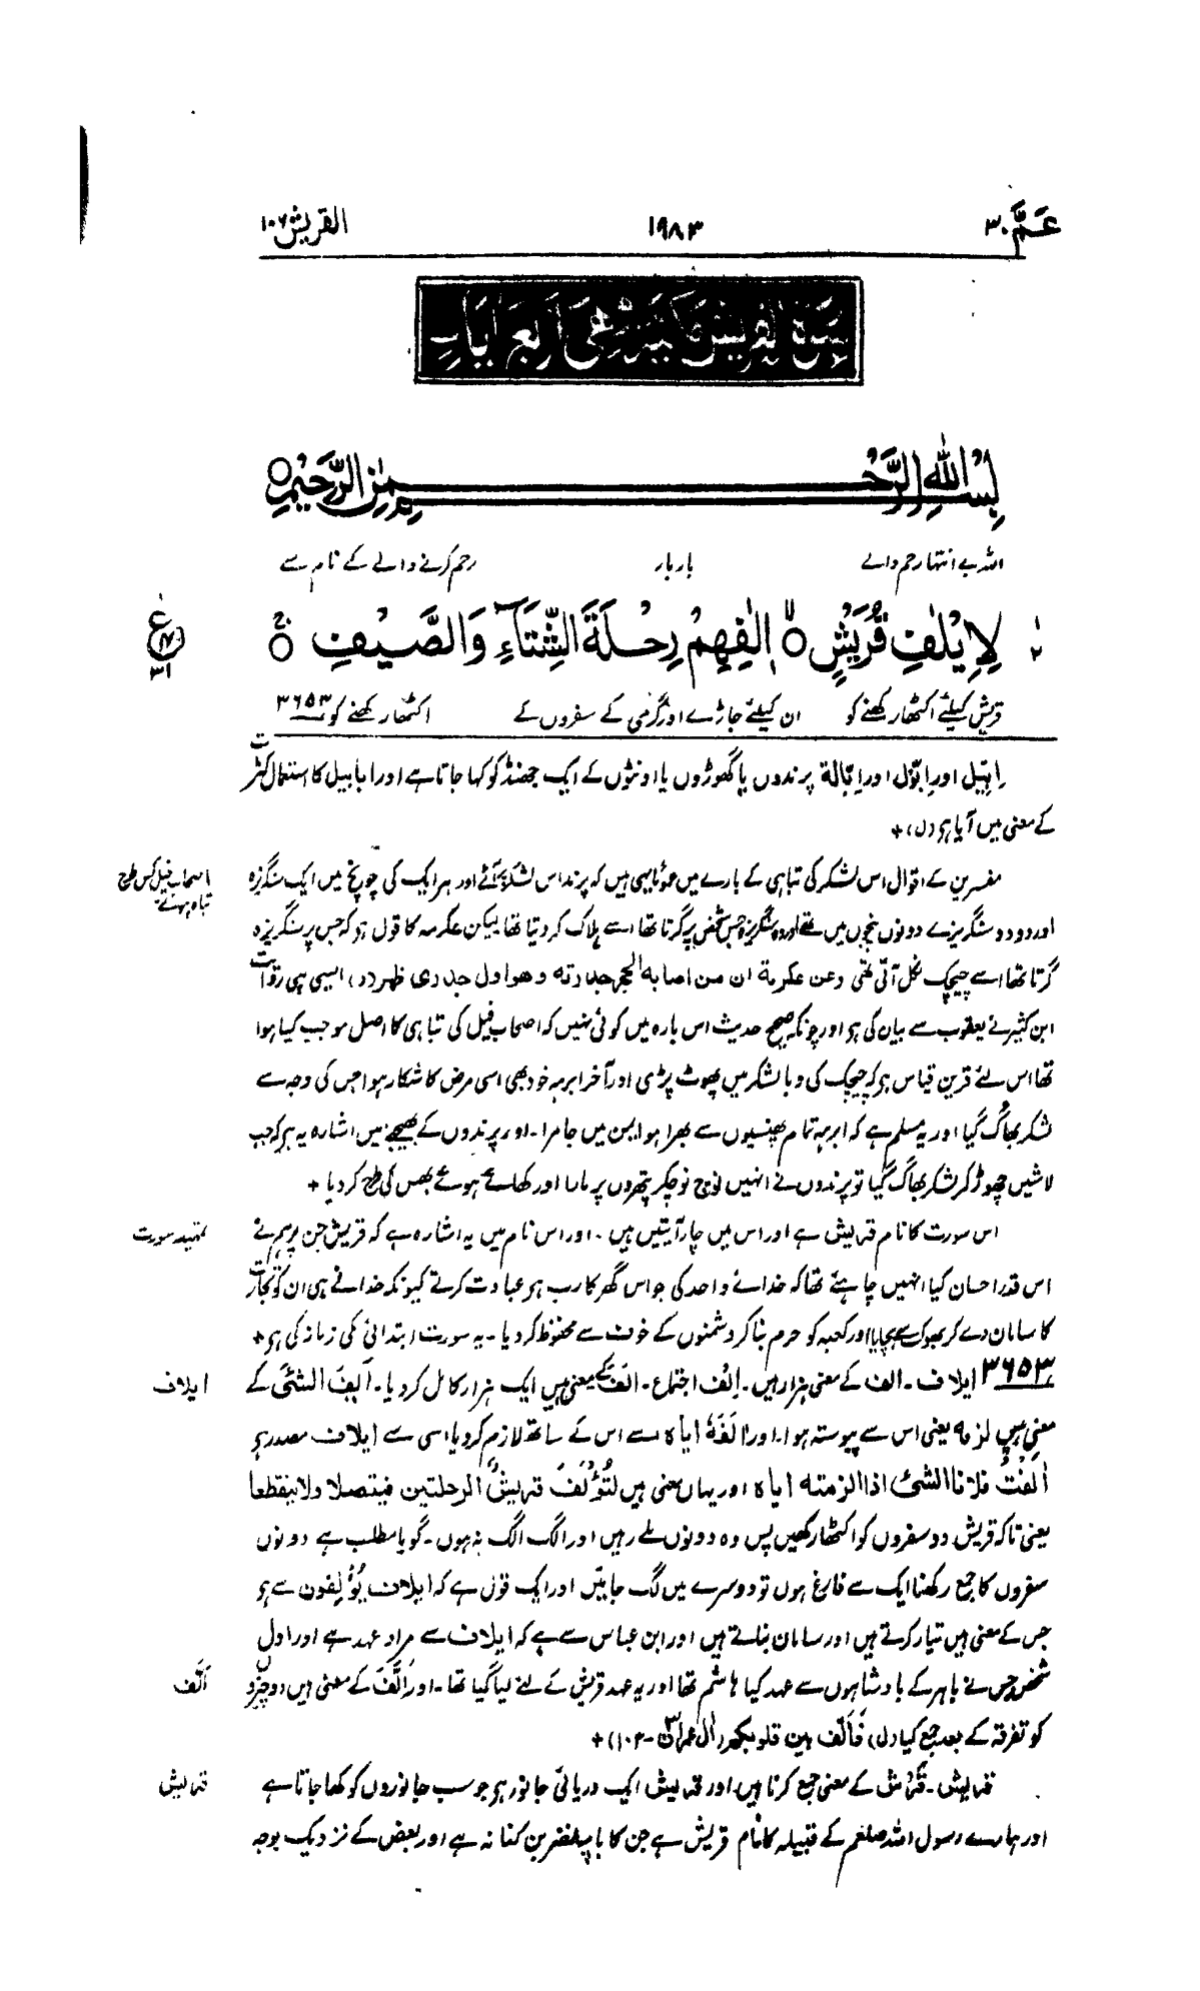 عَمَّ ۳۰
۱۹۸۳
القریش ۱۰۶
سورة القریش مکیة وهی اربع ایات
بِسْمِ اللّٰهِ الرَّحْمٰنِ الرَّحِیْمِ
اللہ بے انتہا رحم والے بار بار رحم کرنے والے کے نام سے
لِاِیْلٰفِ قُرَیْشٍ اٖلٰفِهِمْ رِحْلَةَ الشِّتَآءِ وَالصَّیْفِ
قریش کیلئے اکٹھا رکھنے کو ان کیلئے جاڑے اور گرمی کے سفروں کے اکٹھا رکھنے کو ۳۶۵۳
اِبِّیل اور اِبَّوْل اور اِبَّالة پرندوں یا گھوڑوں یا اونٹوں کے ایک جھنڈ کو کہا جاتا ہے اور ابابیل کا استعمال کثرت
کے معنی میں آیا ہو (ل) +
مفسرین کے اقوال اس لشکر کی تباہی کے بارے میں عموماً یہی ہیں کہ پرند اس لشکر پر آئے اور ہر ایک کی چونچ میں ایک سنگریزہ
اصحاب فیل کس طرح
تباہ ہوئے
اور دو دو سنگریزے دونوں پنجوں میں تھے اور وہ سنگریزہ جس شخص پر گرتا تھا اسے ہلاک کر دیتا تھا لیکن عکرمہ کا قول ہو کہ جس پر سنگریزہ
گرتا تھا اسے چیچک نکل آتی تھی وعن عکرمة ان من اصابه الحجر جدرته وهو اول جدری ظهر (د) ایسی ہی روایت
ابن کثیر نے یعقوب سے بیان کی ہو اور چونکہ صحیح حدیث اس بارہ میں کوئی نہیں کہ اصحاب فیل کی تباہی کا اصل موجب کیا ہوا
تھا اس لئے قرین قیاس ہو کہ چیچک کی وبا لشکر میں پھوٹ پڑی اور آخر ابرہہ خود بھی اسی مرض کا شکار ہوا جس کی وجہ سے
لشکر بھاگ گیا اور یہ مسلم ہے کہ ابرہہ تمام پھنسیوں سے بھرا ہوا یمن میں جا مرا۔ اور پرندوں کے بھیجنے میں اشارہ یہ ہو کہ جب
لاشیں چھوڑ کر لشکر بھاگ گیا تو پرندوں نے انہیں نوچ نوچ کر پتھروں پر مارا اور کھائے ہوئے بھس کی طرح کر دیا +
اس سورت کا نام قریش ہے اور اس میں چار آیتیں ہیں۔ اور اس نام میں یہ اشارہ ہے کہ قریش جن پر ہم نے
تمہید سورت
اس قدر احسان کیا انہیں چاہئے تھا کہ خدائے واحد کی جو اس گھر کا رب ہو عبادت کرتے کیونکہ خدا نے ہی ان کو تجارت
کا سامان دے کر بھوک سے بچایا اور کعبہ کو حرم بنا کر دشمنوں کے خوف سے محفوظ کر دیا۔ یہ سورت ابتدائی مکی زمانہ کی ہو +
۳۶۵۳ ایلاف۔ الف کے معنی ہزار ہیں۔ اِلْف اجتماع۔ اَلَفَ کے معنی ہیں ایک ہزار کامل کر دیا۔ اَلِفَ الشئَ کے
ایلاف
معنی ہیں لزمه یعنی اس سے پیوستہ ہوا۔ اور اٰلَفَهٗ ایاہ سے اس کے ساتھ لازم کر دیا اسی سے ایلاف مصدر ہو
اٰلَفْتُ فلانا الشئ اذا الزمته ایاہ اور یہاں معنی ہیں لتُؤْلَفَ قریشُ الرحلتین فیتصلا ولا ینقطعا
یعنی تاکہ قریش دو سفروں کو اکٹھا رکھیں پس وہ دونوں ملے رہیں اور الگ الگ نہ ہوں۔ گویا مطلب ہے دونوں
سفروں کا جمع رکھنا ایک سے فارغ ہوں تو دوسرے میں لگ جائیں اور ایک قول ہے کہ ایلاف یُؤْلِفون سے ہو
جس کے معنی ہیں تیار کرتے ہیں اور سامان بناتے ہیں اور ابن عباس سے ہے کہ ایلاف سے مراد عہد ہے اور اول
شخص جس نے باہر کے بادشاہوں سے عہد کیا ہاشم تھا اور یہ عہد قریش کے لئے لیا گیا تھا۔ اور اَلَّفَ کے معنی ہیں
اَلَّفَ
کو تفرقہ کے بعد جمع کیا (ل) فَاَلَّفَ بین قلوبکم (اٰل عمران ۳-۱۰۲) +
قریش۔ قَرْش کے معنی جمع کرنا ہیں اور قریش ایک دریائی جانور ہو جو سب جانوروں کو کھا جاتا ہے
قریش
اور ہمارے رسول اللہ صلعم کے قبیلہ کا نام قریش ہے جن کا باپ نضر بن کنانہ ہے اور بعض کے نزدیک بوجہ